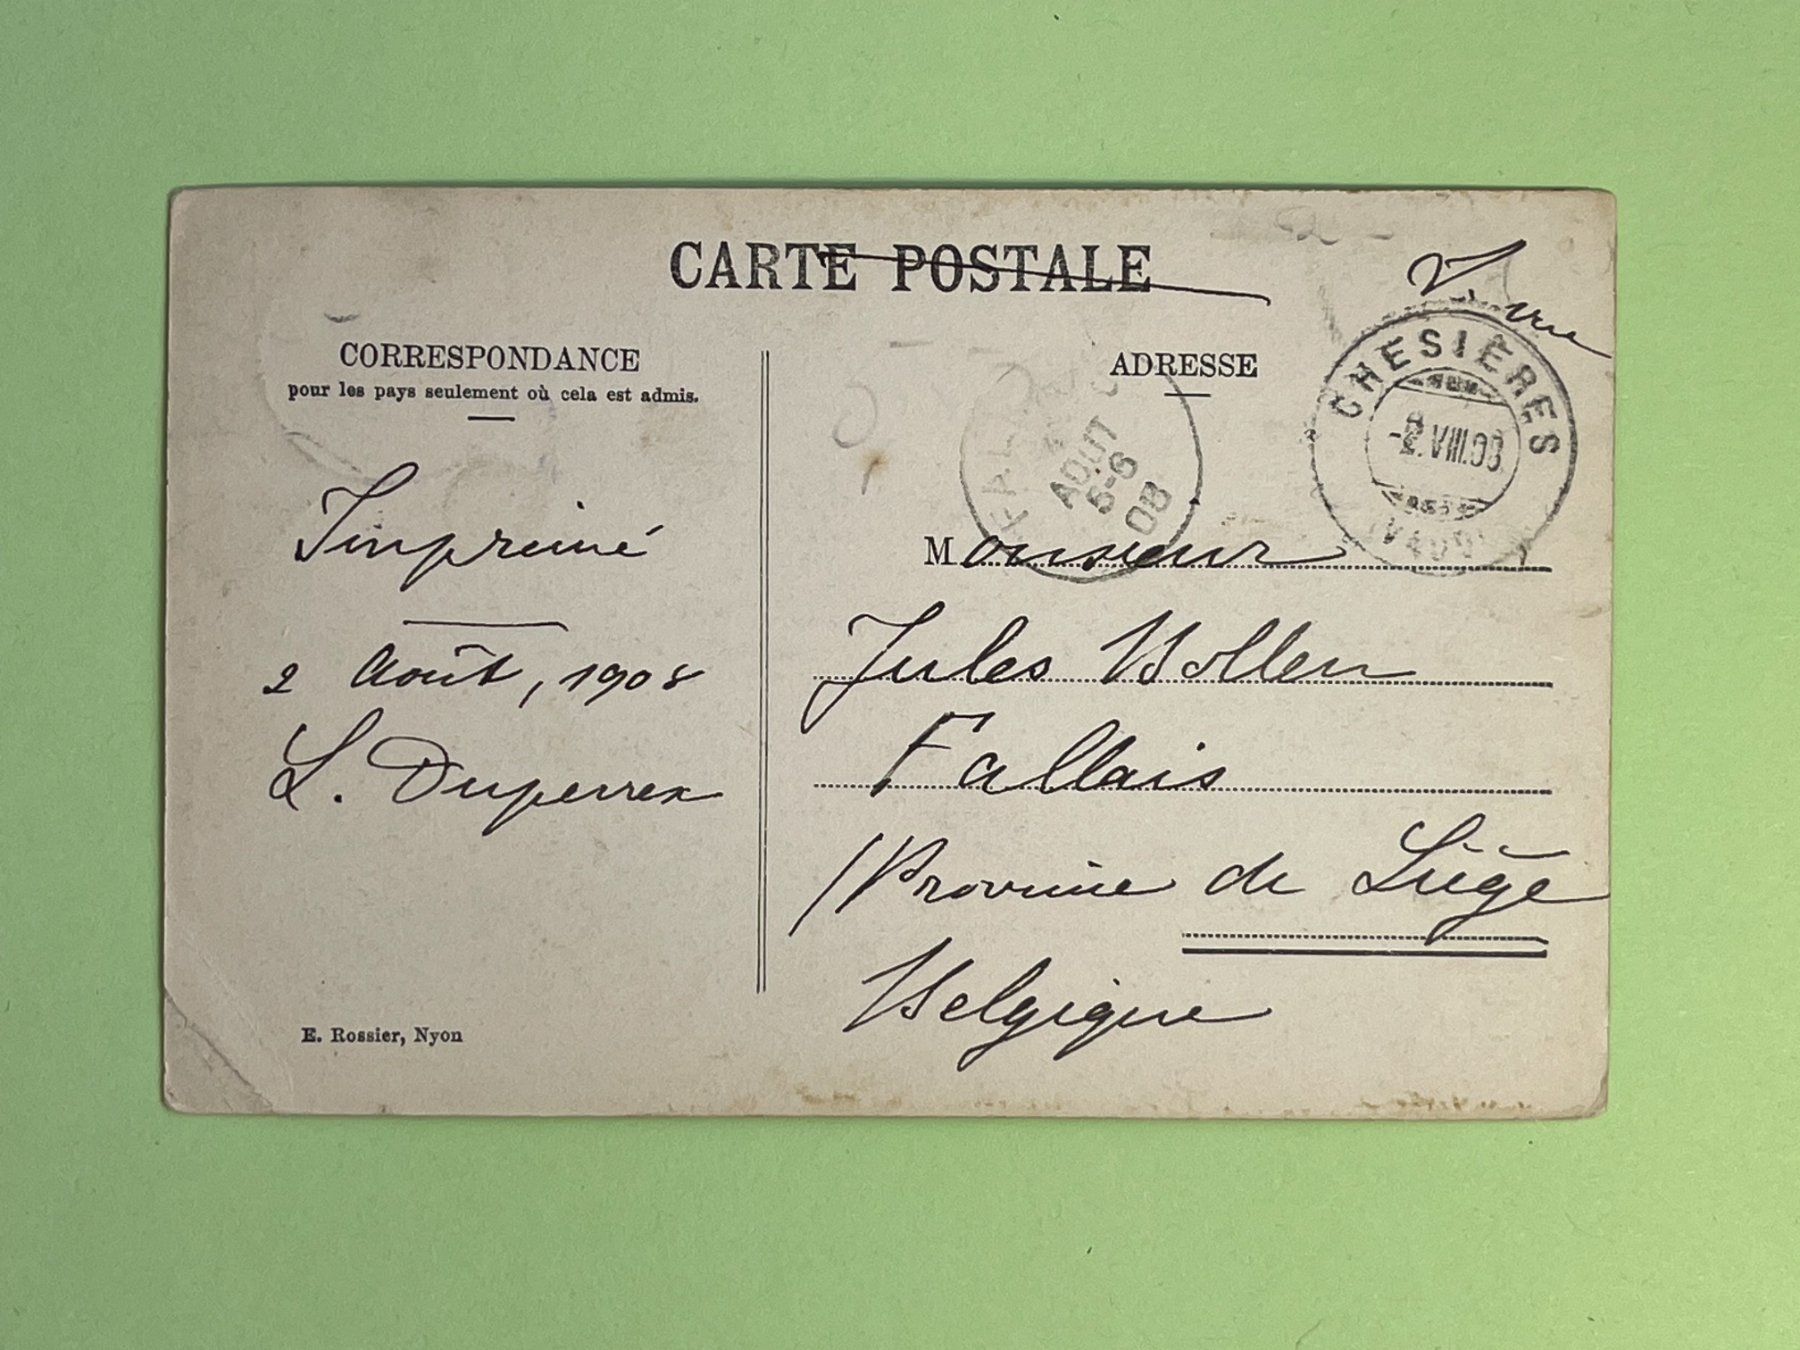 CARTE POSTALE
V. vue
CORRESPONDANCE
pour les pays seulement où cela est admis.
Imprimé
2 Août, 1908
L. Duperrex
E. Rossier, Nyon
ADRESSE
CHESIÈRES
VIII.08
(VAUD)
AOUT
5-6
08
Monsieur
Jules Bollen
Fallais
Province de Liège
Belgique